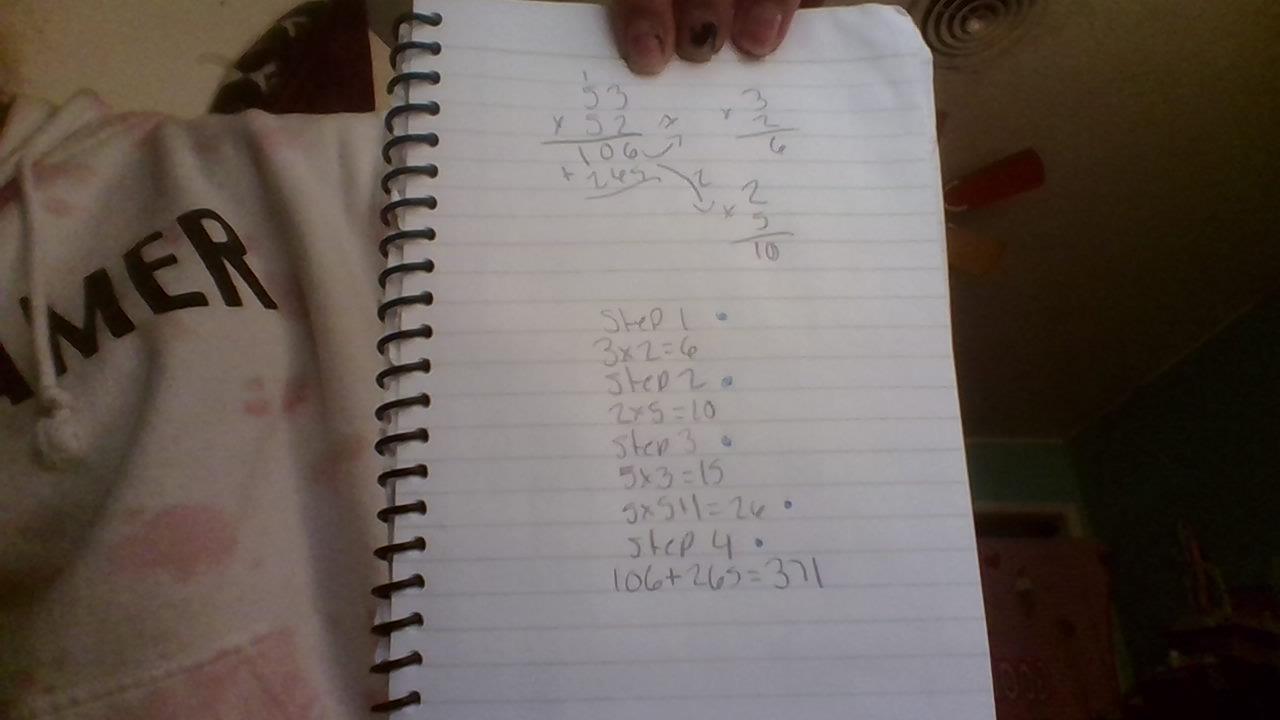 MER
1
53
x 52
106
+ 265
3
x 2
6
2
x 5
10
Step 1
3x2=6
Step 2
2x5=10
Step 3
5x3=15
5x5+1=26
Step 4
106+265=371